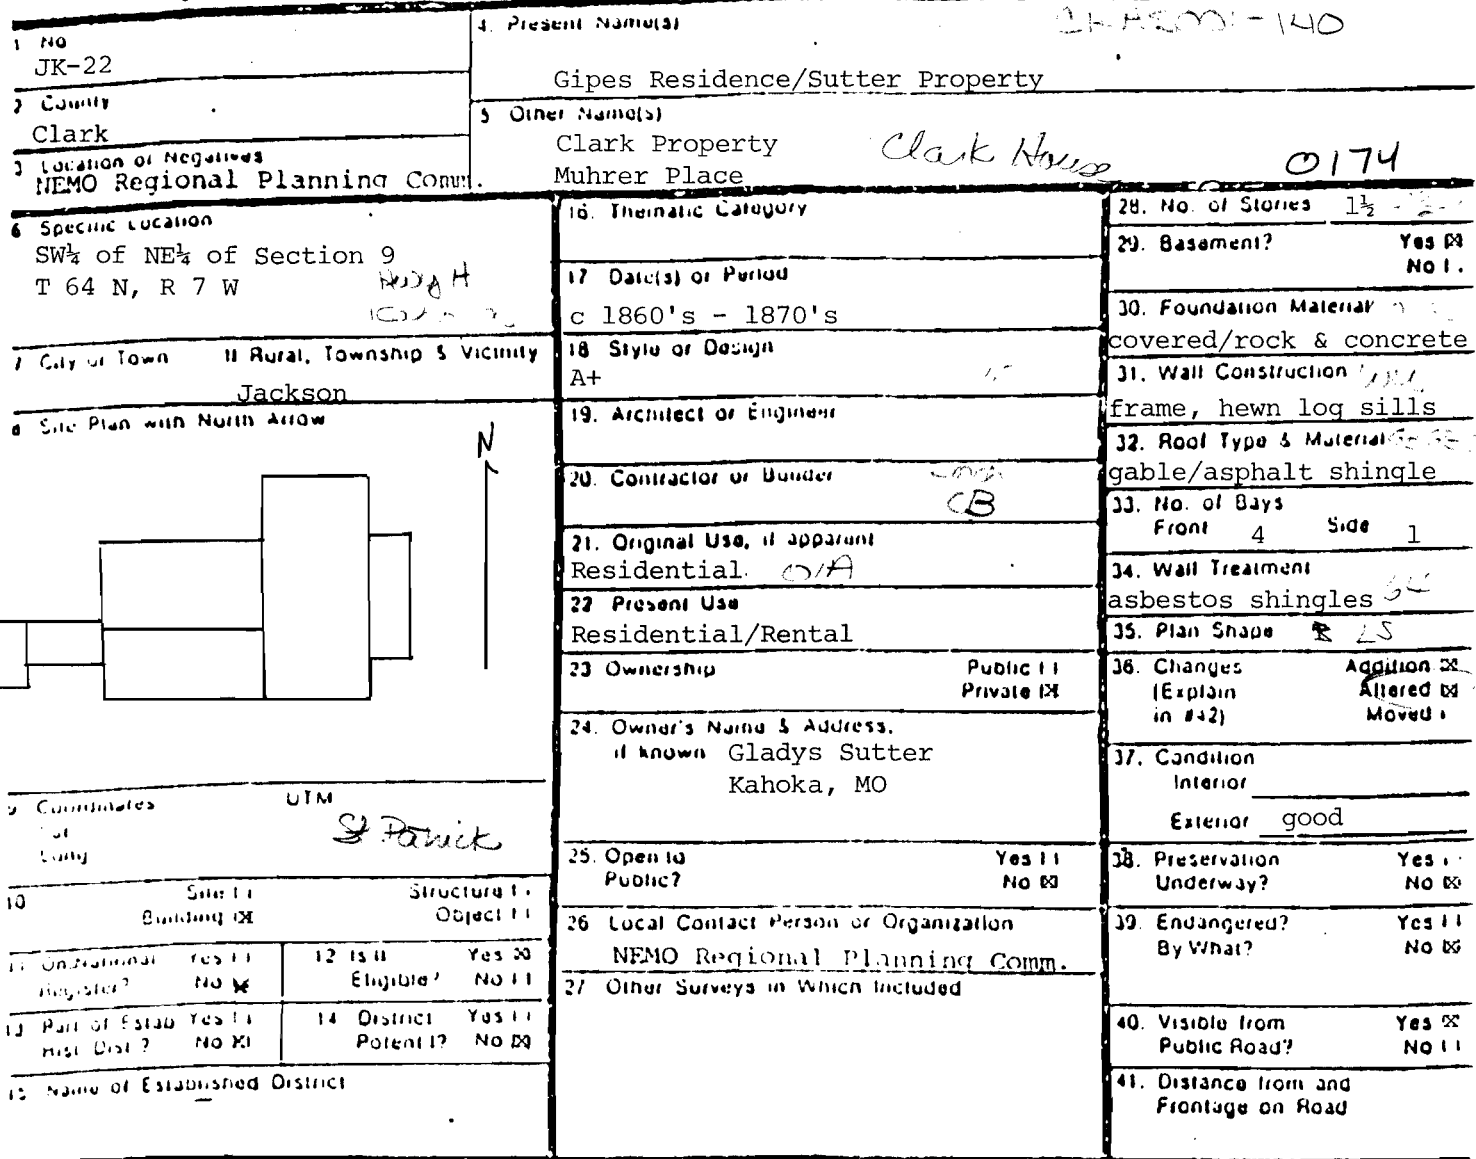 1 No
JK-22
4. Present Name(s)
Gipes Residence/Sutter Property
2 County
Clark
5 Other Name(s)
Clark Property
Clark House
0174
Muhrer Place
3 Location of Negatives
NEMO Regional Planning Comm.
6 Specific Location
SW¼ of NE¼ of Section 9
T 64 N, R 7 W
7 City or Town If Rural, Township & Vicinity
Jackson
8 Site Plan with North Arrow
N
9 Coordinates UTM
Lat
Long
10 Site [ ] Structure [ ]
Building [X] Object [ ]
11 On National Register? Yes [ ] No [X]
12 Is it Eligible? Yes [X] No [ ]
13 Part of Estab Hist. Dist.? Yes [ ] No [X]
14 District Potent'l? Yes [ ] No [X]
15 Name of Established District
16. Thematic Category
17 Date(s) or Period
c 1860's - 1870's
18 Style or Design
A+
19. Architect or Engineer
20. Contractor or Builder
CB
21. Original Use, if apparent
Residential O/A
22 Present Use
Residential/Rental
23 Ownership Public [ ]
Private [X]
24. Owner's Name & Address,
if known Gladys Sutter
Kahoka, MO
25. Open to Public? Yes [ ]
No [X]
26 Local Contact Person or Organization
NEMO Regional Planning Comm.
27 Other Surveys in Which Included
28. No. of Stories 1½
29. Basement? Yes [X]
No [ ]
30. Foundation Material
covered/rock & concrete
31. Wall Construction
frame, hewn log sills
32. Roof Type & Material
gable/asphalt shingle
33. No. of Bays
Front 4 Side 1
34. Wall Treatment
asbestos shingles
35. Plan Shape
36. Changes Addition [X]
(Explain Altered [X]
in #42) Moved [ ]
37. Condition
Interior
Exterior good
38. Preservation Yes [ ]
Underway? No [X]
39. Endangered? Yes [ ]
By What? No [X]
40. Visible from Yes [X]
Public Road? No [ ]
41. Distance from and
Frontage on Road